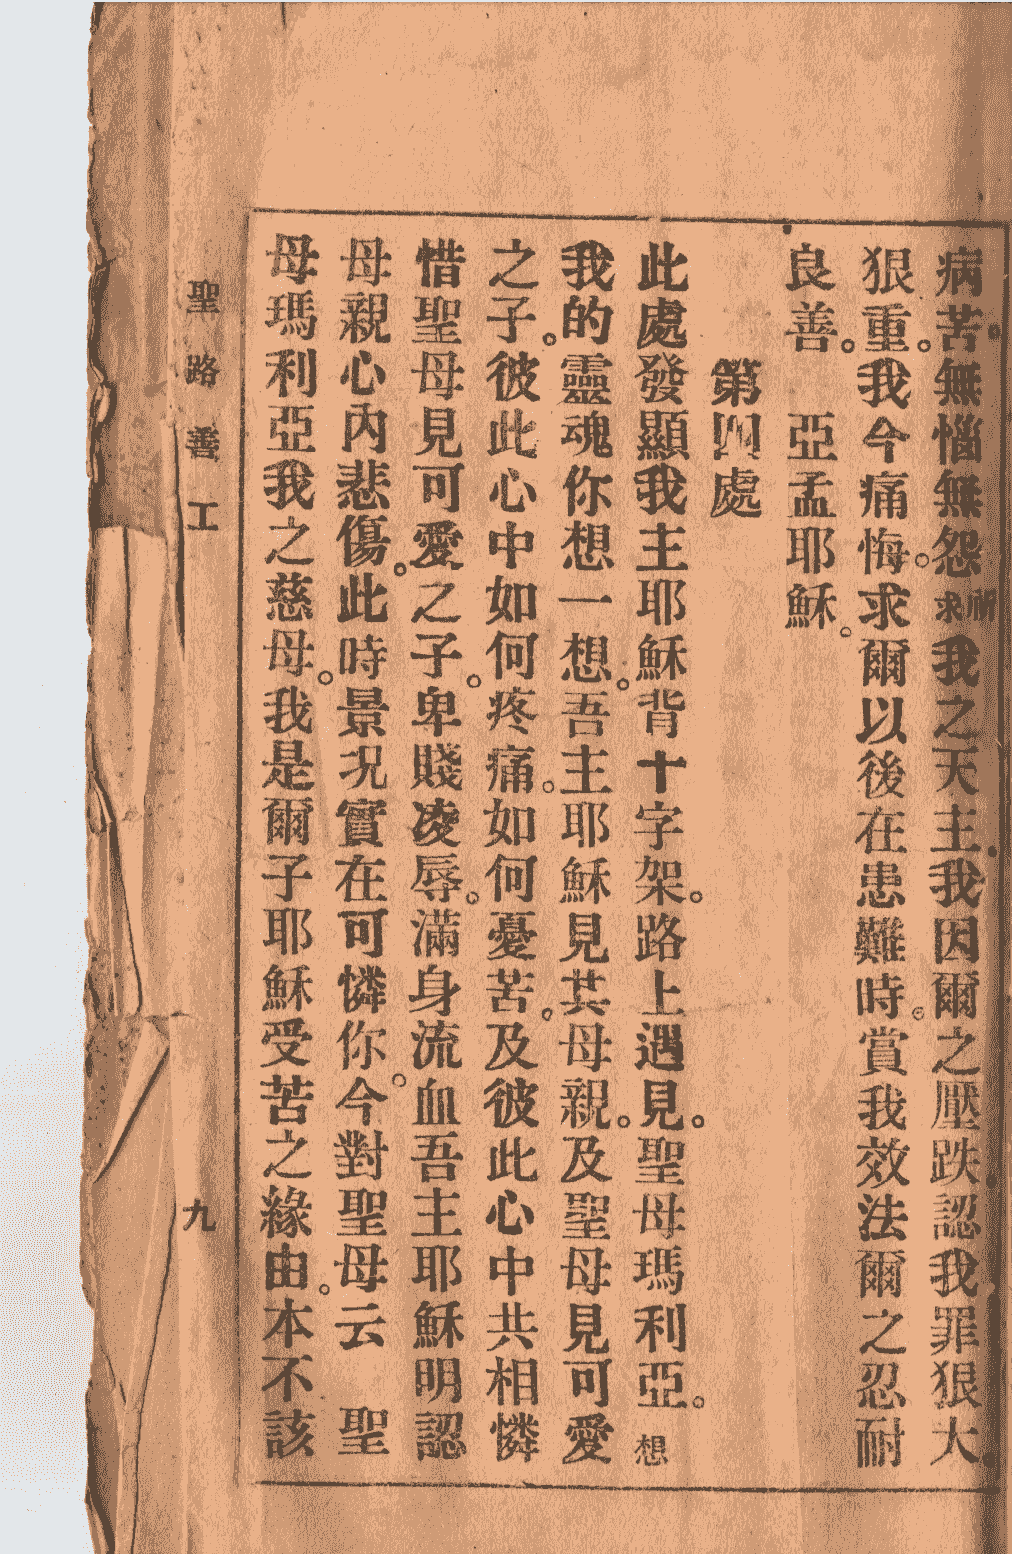 病苦。無惱無怨祈求我之天主。我因爾之壓跌。認我罪狠大
狠重。我今痛悔。求爾以後在患難時。賞我效法爾之忍耐
良善。亞孟耶穌。
第四處
此處發顯我主耶穌背十字架。路上遇見。聖母瑪利亞。想
我的靈魂你想一想。吾主耶穌見其母親。及聖母見可愛
之子。彼此心中如何疼痛。如何憂苦。及彼此心中共相憐
惜聖母見可愛之子。卑賤凌辱。滿身流血吾主耶穌明認
母親心內悲傷。此時景況實在可憐你。今對聖母云 聖
母瑪利亞我之慈母。我是爾子耶穌受苦之緣由。本不該
聖路善工
九